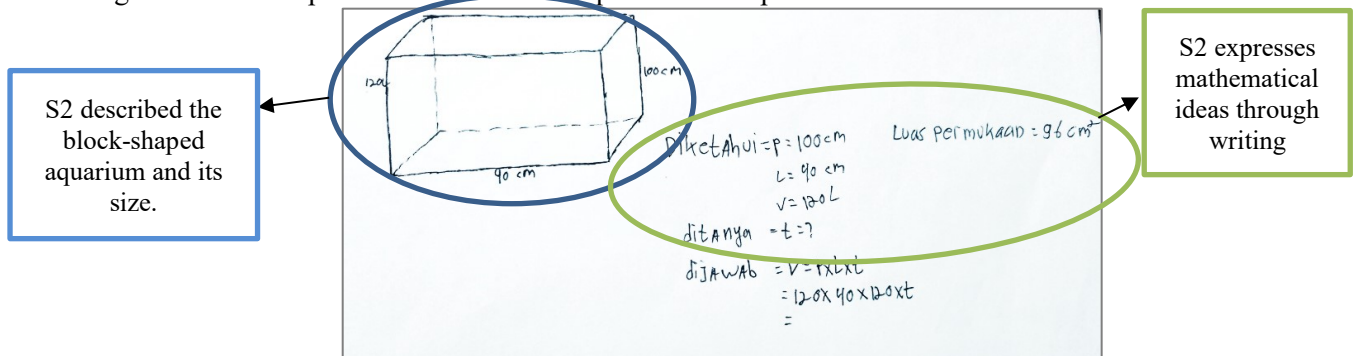 S2 described the
block-shaped
aquarium and its
size.
100cm
90 cm
Diketahui = p = 100cm
L = 90 cm
V = 120L
Luas permukaan = 96 cm²
ditanya = t = ?
dijawab = V = PxLxt
= 120x40x120xt
=
S2 expresses
mathematical
ideas through
writing